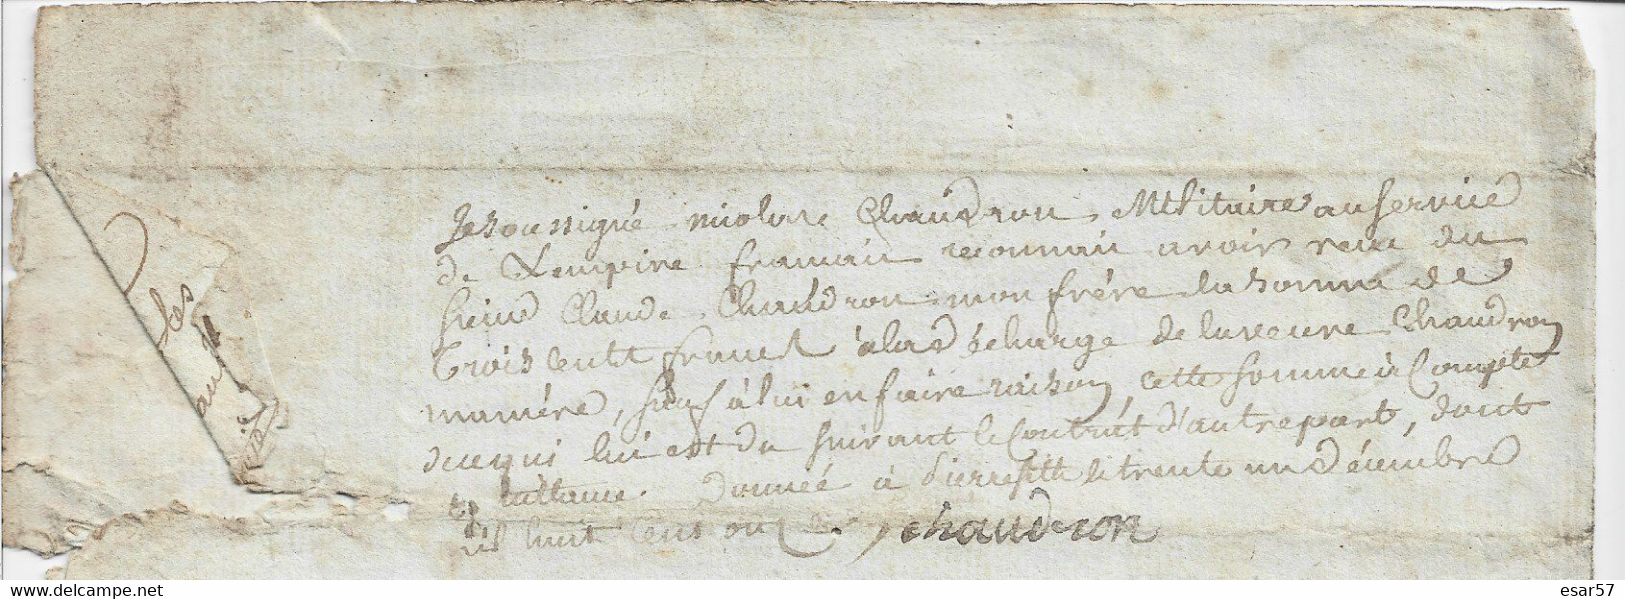 Je soussigné nicolas Chaudron Militaire au service
de Lempire francais reconnais avoir recu du
sieur Claude Chaudron mon frère la somme de
trois cents francs à la décharge de la veuve Chaudron
ma mère, sauf à lui en faire raison, cette somme à Compte
de ce qui lui est du suivant le Contrat d'autre part, dont
quittance. Donnée à pierrefitte le trente un décembre
dix huit cens onze chaudron
les
esar57